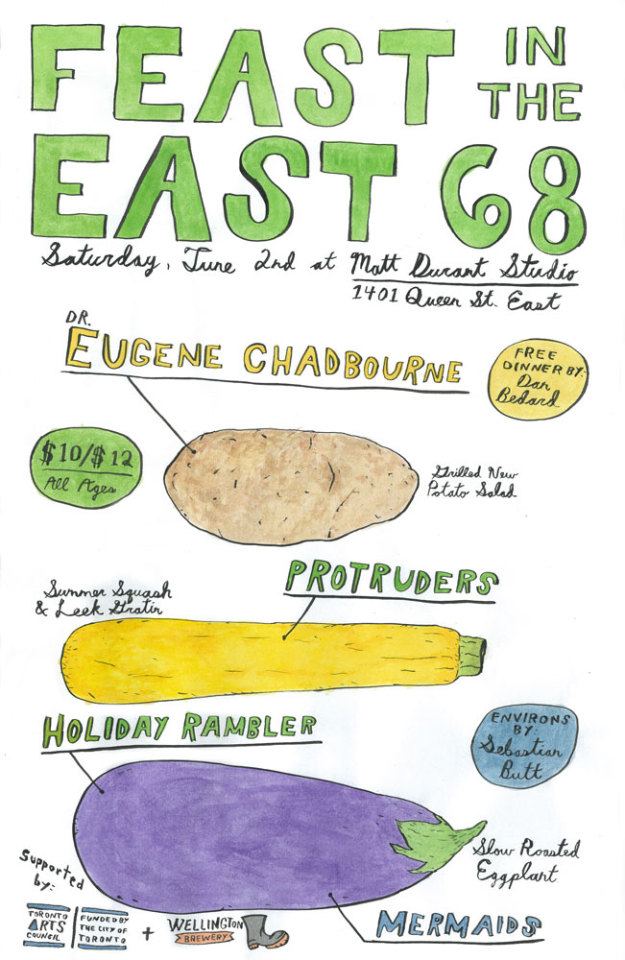 FEAST IN
THE
EAST 68
Saturday, June 2nd at Matt Durant Studio
1401 Queen St. East
DR.
EUGENE CHADBOURNE
FREE
DINNER BY:
Dan
Bedard
$10/$12
All Ages
Grilled New
Potato Salad
PROTRUDERS
Summer Squash
& Leek Gratin
HOLIDAY RAMBLER
ENVIRONS
BY:
Sebastian
Butt
Slow Roasted
Eggplant
MERMAIDS
Supported
by:
TORONTO
ARTS
COUNCIL
FUNDED BY
THE CITY OF
TORONTO
+
WELLINGTON
BREWERY